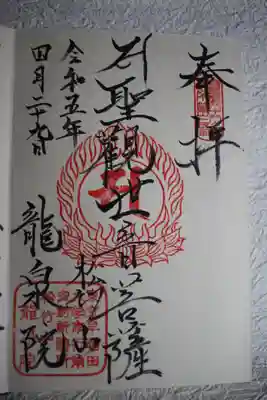 奉拝
聖観世音菩薩
松行山
龍泉院
令和五年
四月二十九日